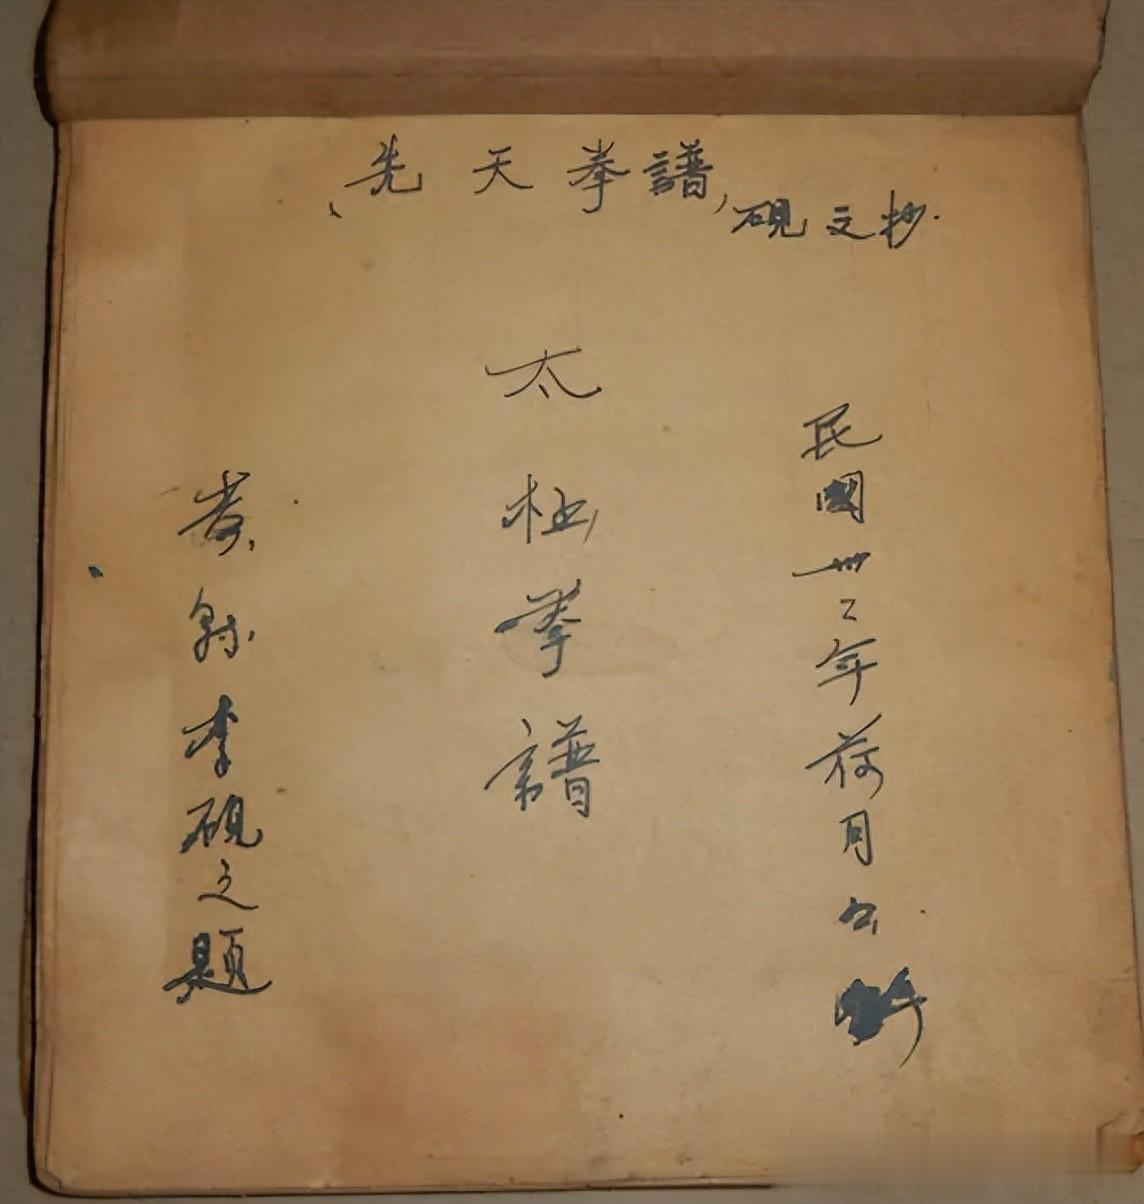 先天拳譜，硯之抄
民國卅二年荷月
太极拳譜
李硯之題